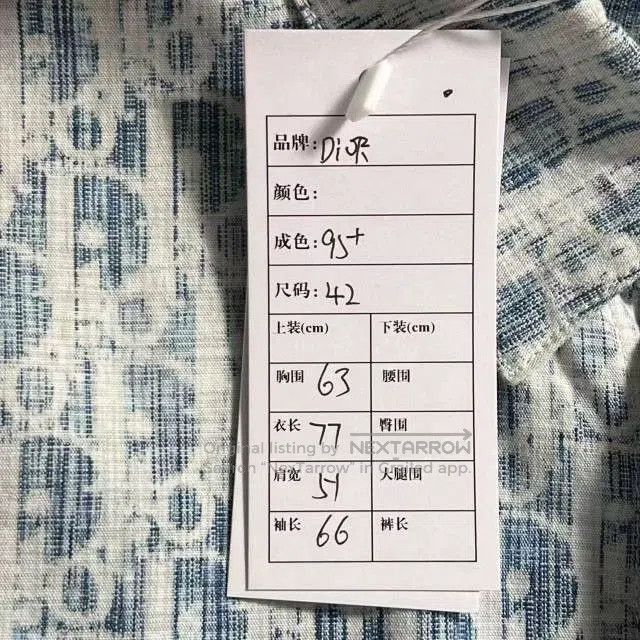 品牌: DiOR
颜色:
成色: 95+
尺码: 42
上装(cm) 下装(cm)
胸围 63 腰围
衣长 77 臀围
Original listing by NEXTARROW
Sell on "NexTarrow" in Grailed app.
肩宽 51 大腿围
袖长 66 裤长